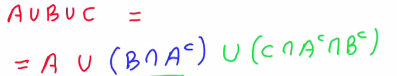 A ∪ B ∪ C =
= A ∪ (B ∩ Aᶜ) ∪ (C ∩ Aᶜ ∩ Bᶜ)